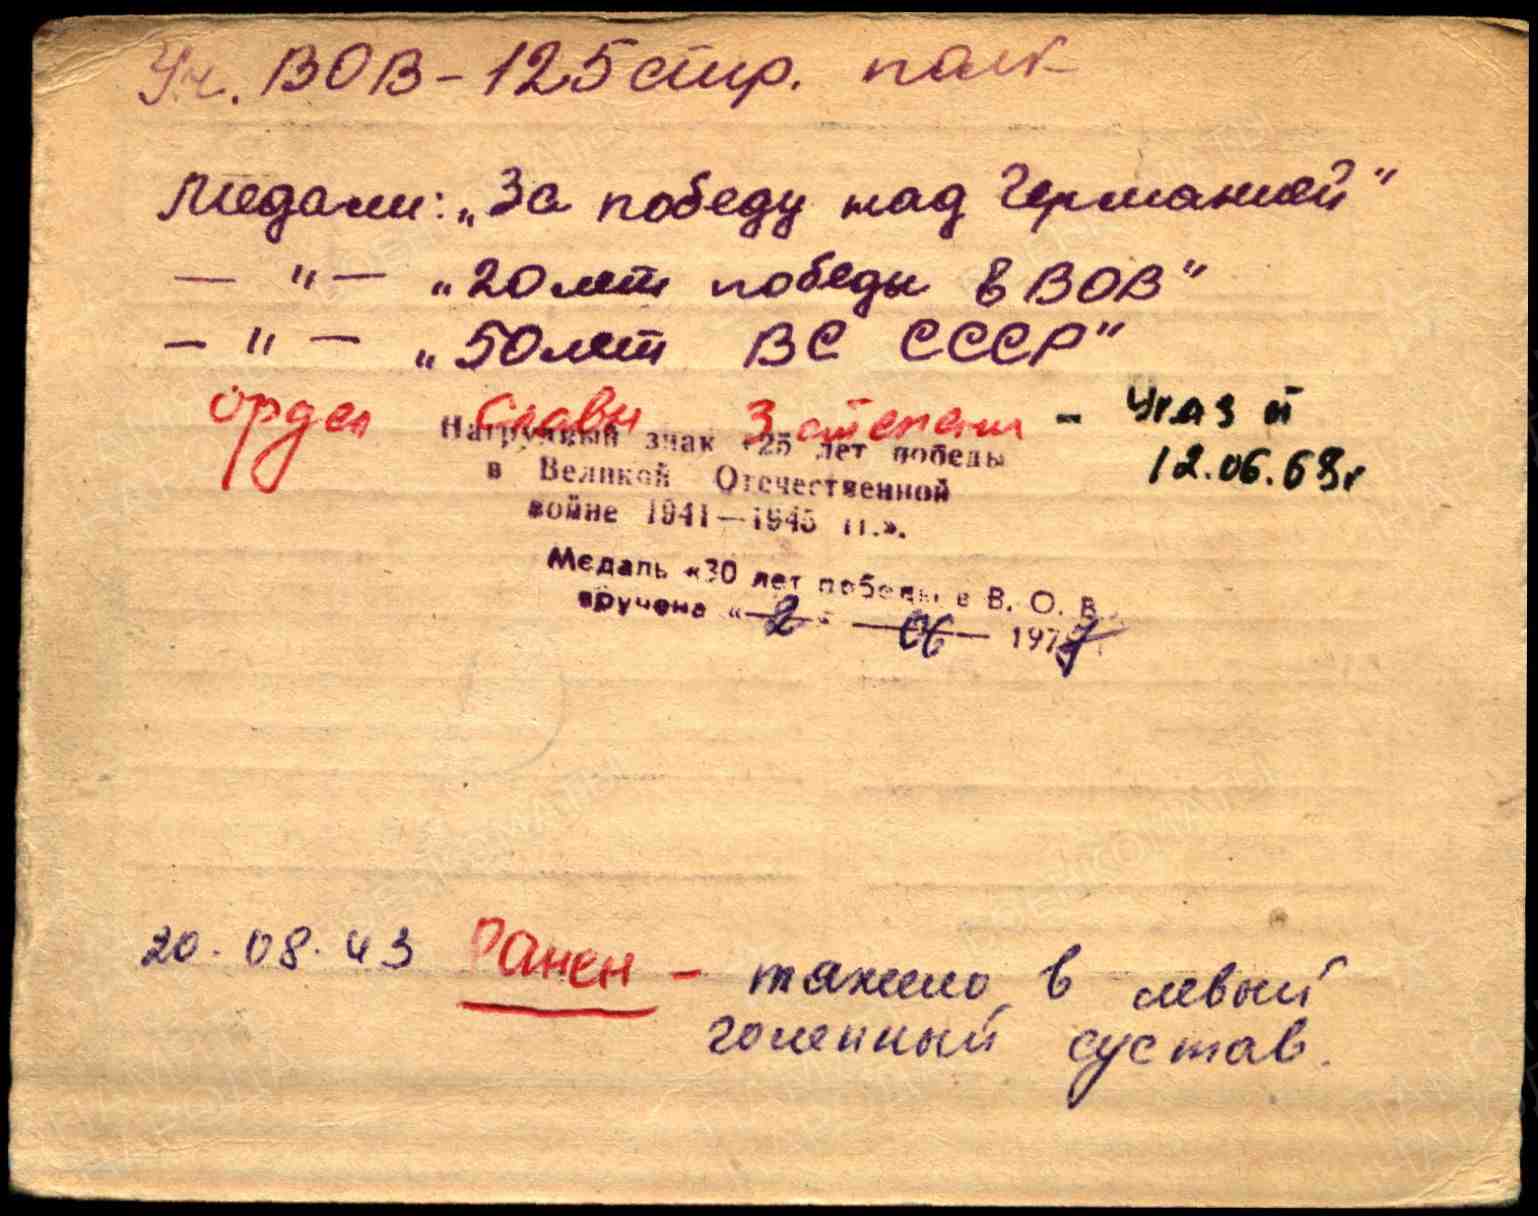 Уч. ВОВ – 125 стр. полк
Медали: „За победу над Германией"
— " — „20 лет победы в ВОВ"
— " — „50 лет ВС СССР"
орден Славы 3 степени – Указ
12.06.
Нагрудный знак «25 лет победы
в Великой Отечественной
войне 1941—1945 гг.».
Медаль «30 лет победы в В. О. В.
вручена «2» 06 1977
20.08.43 Ранен – тяжело в левый
голенный сустав.